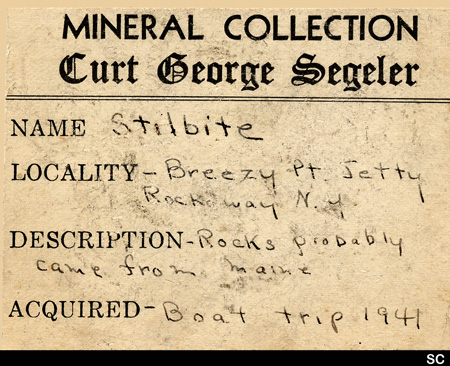 MINERAL COLLECTION
Curt George Segeler
NAME Stilbite
LOCALITY - Breezy Pt. Jetty
Rockaway N.Y.
DESCRIPTION - Rocks probably
came from Maine
ACQUIRED - Boat trip 1941
SC